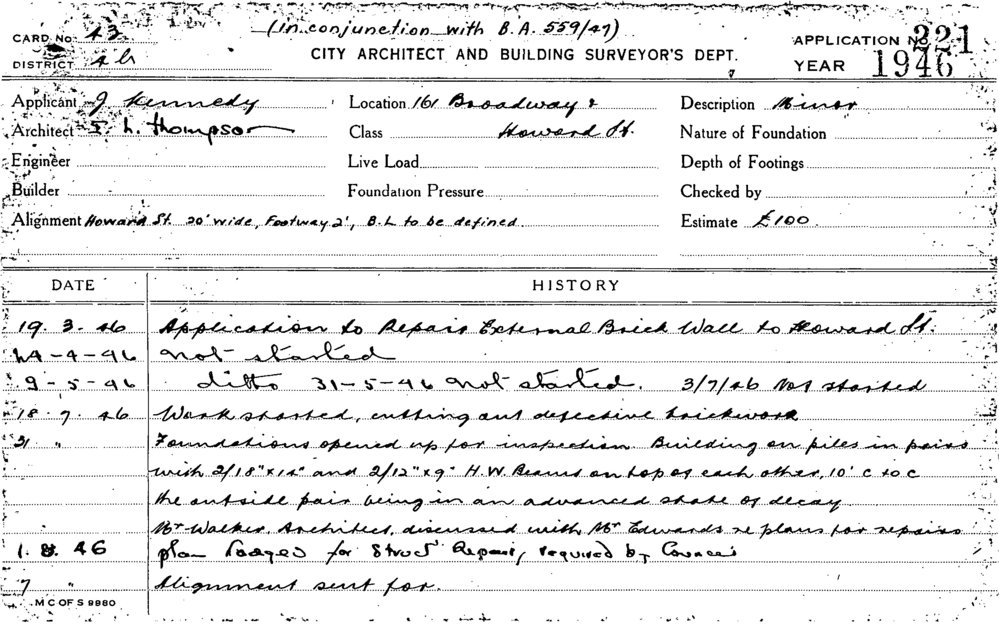 (In conjunction with B.A. 559/47)
CARD No. 43
CITY ARCHITECT AND BUILDING SURVEYOR'S DEPT.
APPLICATION No 221
DISTRICT
YEAR 1946
Applicant J Kennedy
Location 161 Broadway &
Description Minor
Architect E. L. Thompson
Class Howard St.
Nature of Foundation
Engineer
Live Load
Depth of Footings
Builder
Foundation Pressure
Checked by
Alignment Howard St. 20' wide, Footway 2', B.L to be defined.
Estimate £100.
DATE HISTORY
19.3.46 Application to Repair External Brick Wall to Howard St.
24-4-46 not started
9-5-46 ditto 31-5-46 not started. 3/7/46 Not started
18.7.46 Work started, cutting out defective brickwork
31 " Foundations opened up for inspection. Building on piles in pairs
with 2/18"x14" and 2/12"x9" H.W. Beams on top of each other, 10' C to C
the outside pair being in an advanced state of decay
Mr Walker, Architect, discussed with Mr Edwards re plans for repairs
1.8.46 plan lodged for Struct Repairs, required by Council
7 " Alignment sent for.
M C OF S 9880